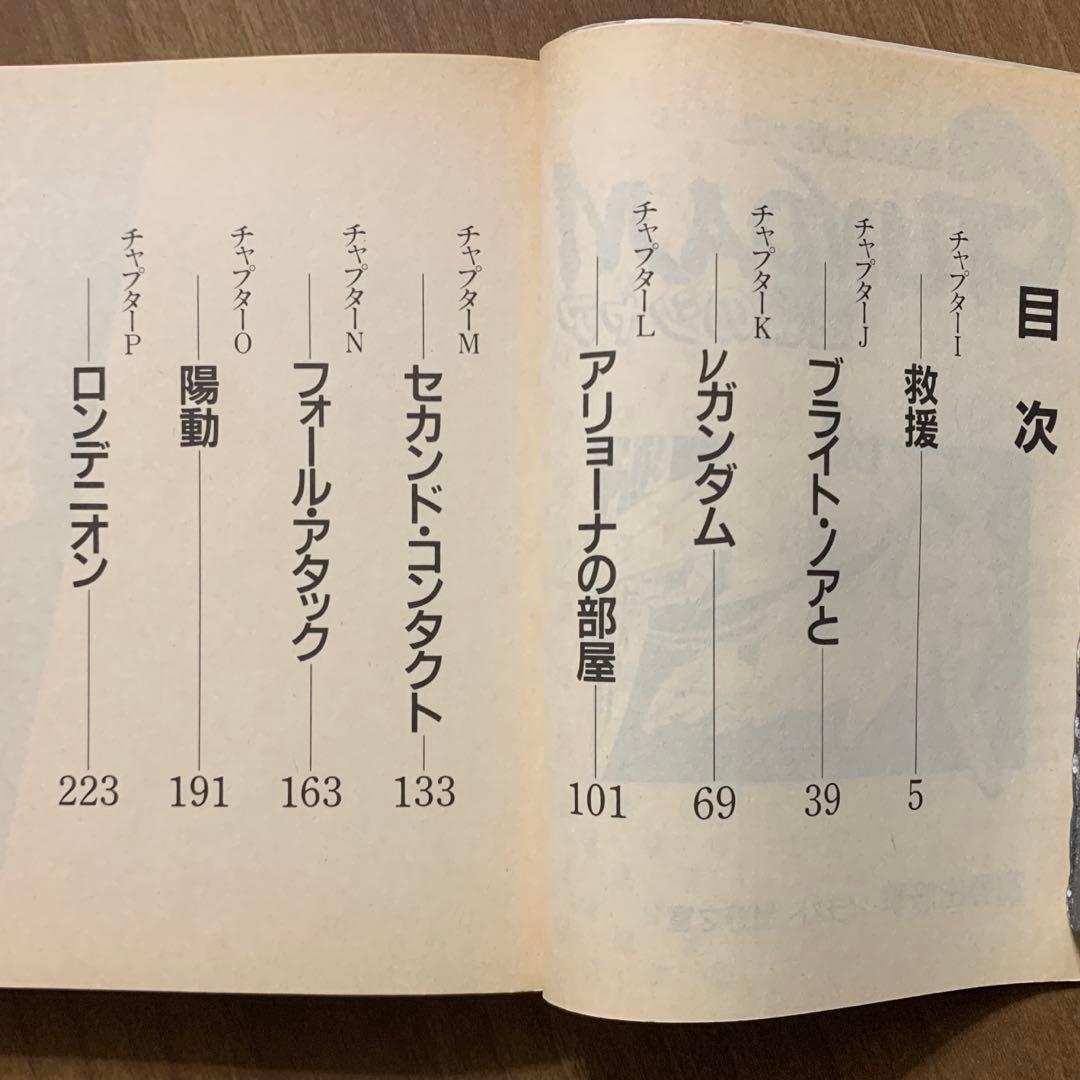 目次
チャプターI
救援 5
チャプターJ
ブライト・ノアと 39
チャプターK
νガンダム 69
チャプターL
アリョーナの部屋 101
チャプターM
セカンド・コンタクト 133
チャプターN
フォール・アタック 163
チャプターO
陽動 191
チャプターP
ロンデニオン 223